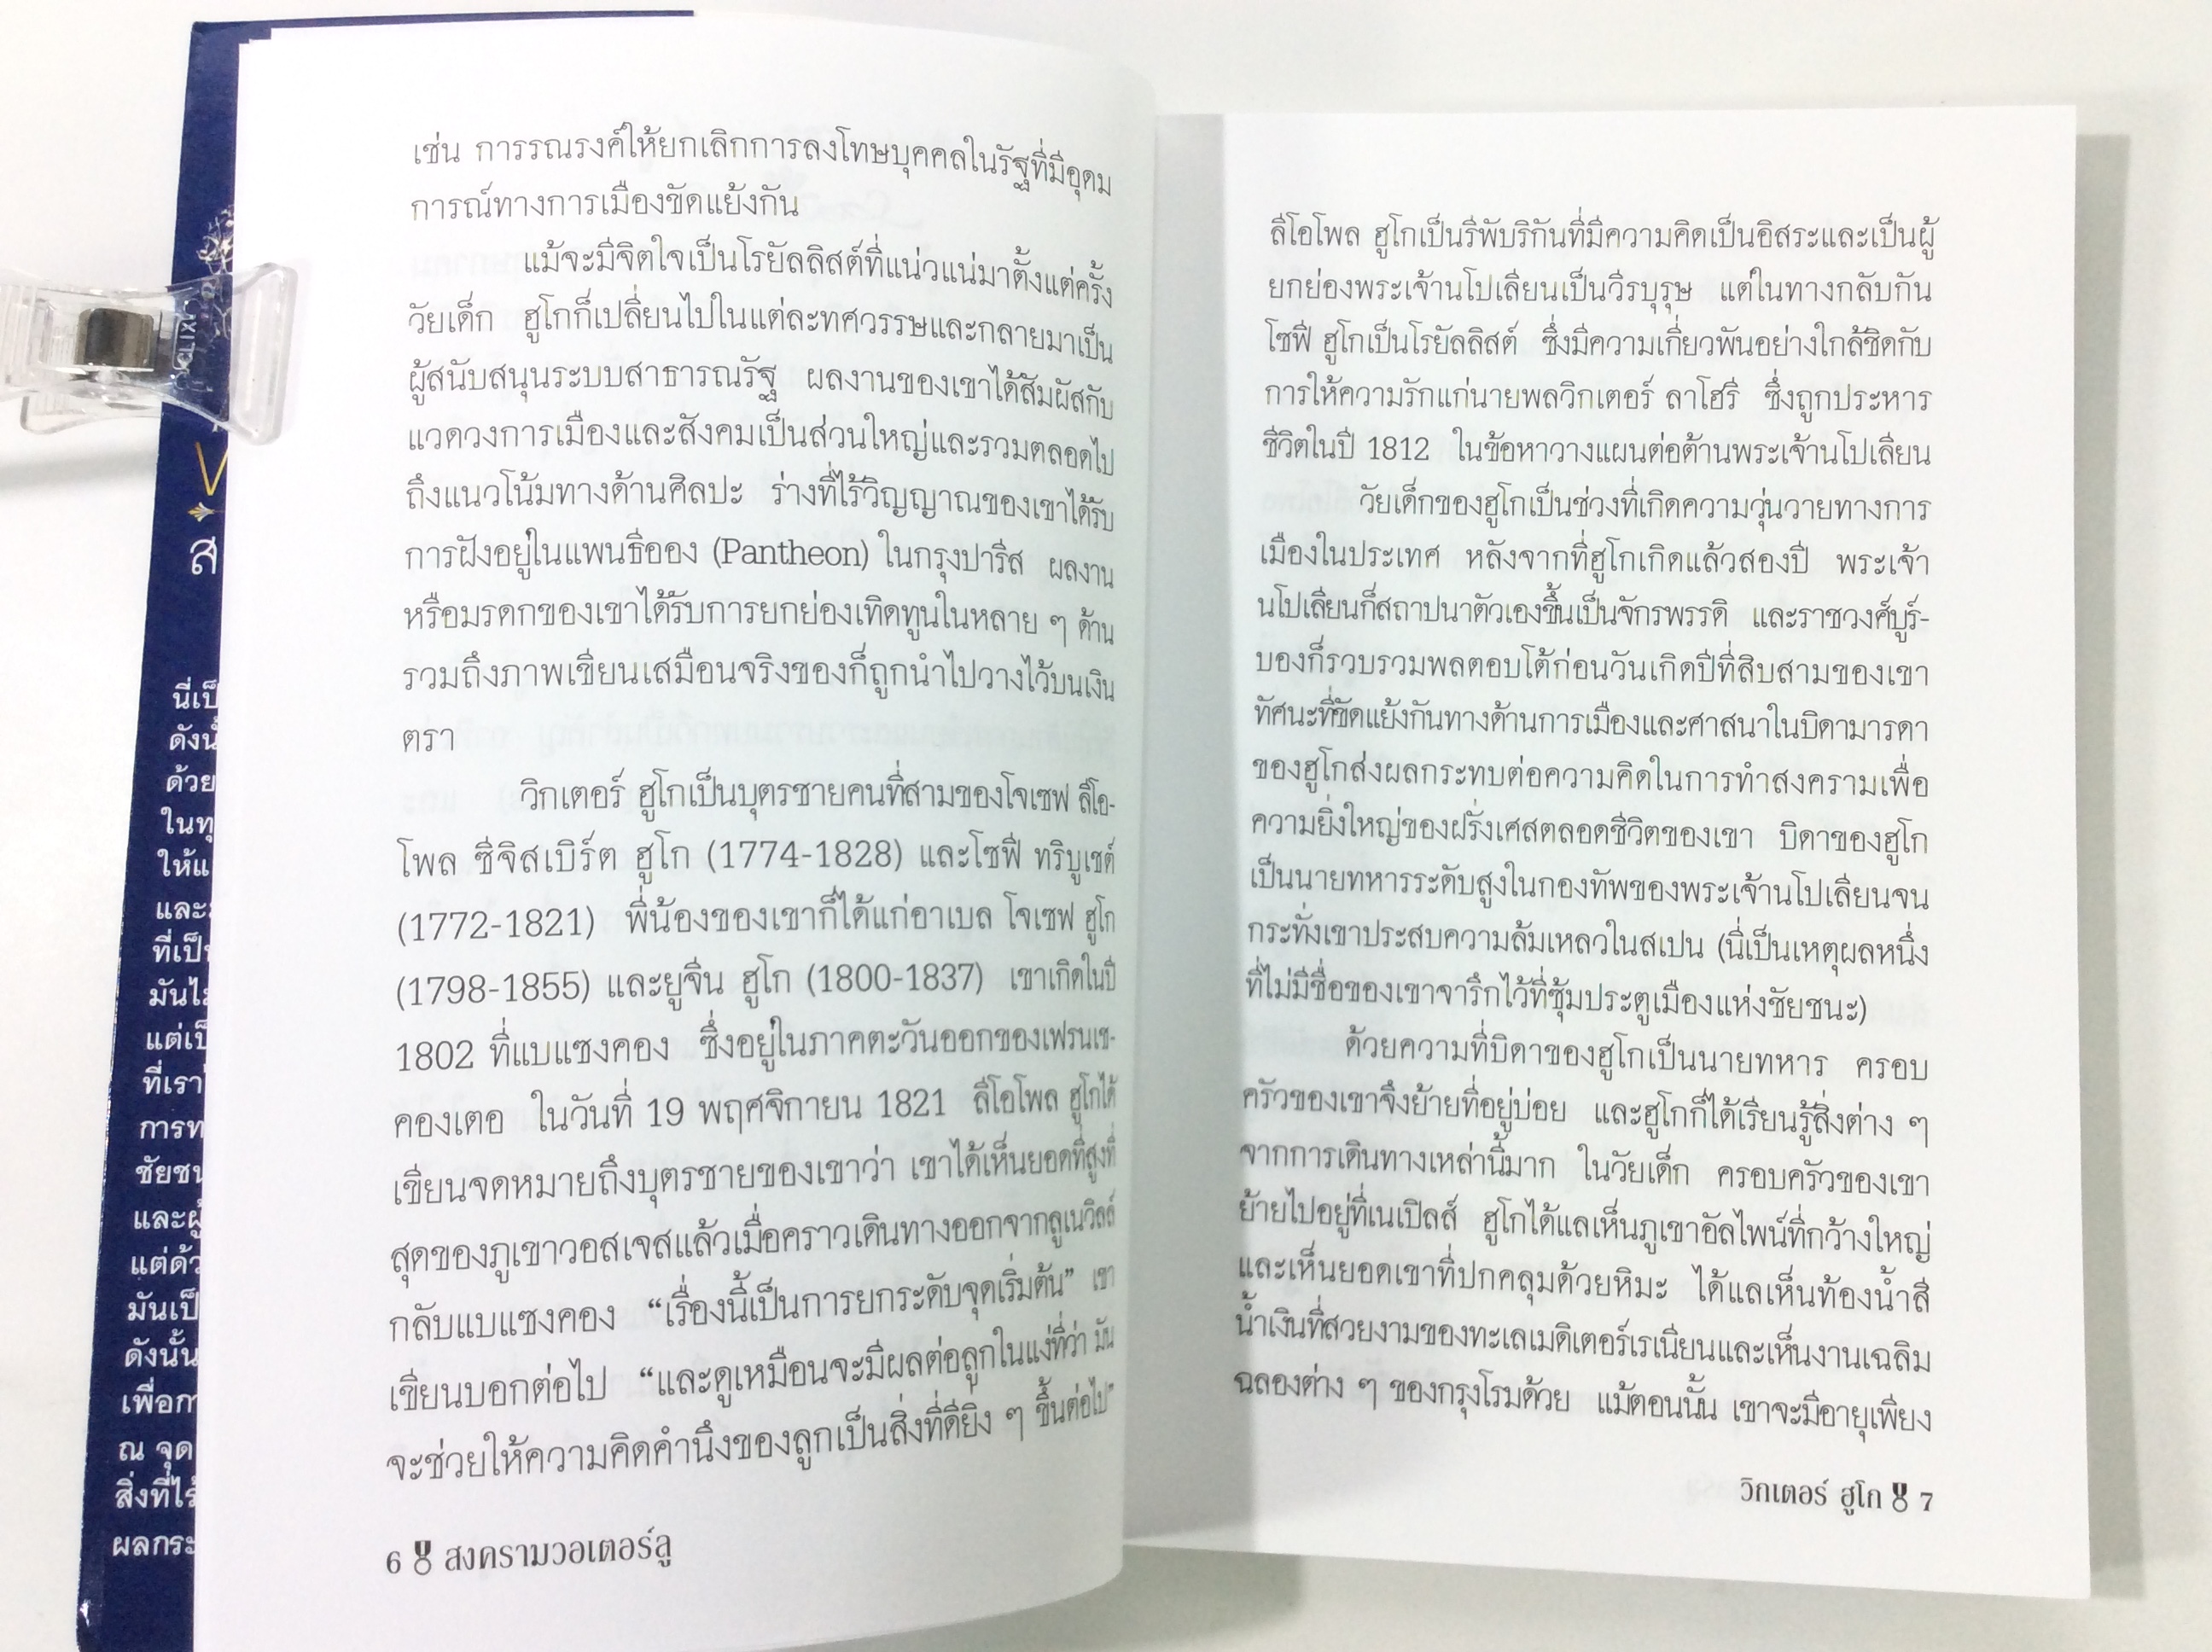 เช่น การรณรงค์ให้ยกเลิกการลงโทษบุคคลในรัฐที่มีอุดม
การณ์ทางการเมืองขัดแย้งกัน
แม้จะมีจิตใจเป็นโรยัลลิสต์ที่แน่วแน่มาตั้งแต่ครั้ง
วัยเด็ก ฮูโกก็เปลี่ยนไปในแต่ละทศวรรษและกลายมาเป็น
ผู้สนับสนุนระบบสาธารณรัฐ ผลงานของเขาได้สัมผัสกับ
แวดวงการเมืองและสังคมเป็นส่วนใหญ่และรวมตลอดไป
ถึงแนวโน้มทางด้านศิลปะ ร่างที่ไร้วิญญาณของเขาได้รับ
การฝังอยู่ในแพนธีออง (Pantheon) ในกรุงปารีส ผลงาน
หรือมรดกของเขาได้รับการยกย่องเทิดทูนในหลาย ๆ ด้าน
รวมถึงภาพเขียนเสมือนจริงของก็ถูกนำไปวางไว้บนเงิน
ตรา
วิกเตอร์ ฮูโกเป็นบุตรชายคนที่สามของโจเซฟ ลีโอ-
โพล ซีจิสเบิร์ต ฮูโก (1774-1828) และโซฟี ทริบูเชต์
(1772-1821) พี่น้องของเขาก็ได้แก่อาเบล โจเซฟ ฮูโก
(1798-1855) และยูจีน ฮูโก (1800-1837) เขาเกิดในปี
1802 ที่แบแซงคอง ซึ่งอยู่ในภาคตะวันออกของเฟรนเช-
คองเตอ ในวันที่ 19 พฤศจิกายน 1821 ลีโอโพล ฮูโกได้
เขียนจดหมายถึงบุตรชายของเขาว่า เขาได้เห็นยอดที่สูงที่
สุดของภูเขาวอสเจสแล้วเมื่อคราวเดินทางออกจากลูเนวิลล์
กลับแบแซงคอง “เรื่องนี้เป็นการยกระดับจุดเริ่มต้น” เขา
เขียนบอกต่อไป “และดูเหมือนจะมีผลต่อลูกในแง่ที่ว่า มัน
จะช่วยให้ความคิดคำนึงของลูกเป็นสิ่งที่ดียิ่ง ๆ ขึ้นต่อไป”
6 สงครามวอเตอร์ลู
ลีโอโพล ฮูโกเป็นรีพับริกันที่มีความคิดเป็นอิสระและเป็นผู้
ยกย่องพระเจ้านโปเลียนเป็นวีรบุรุษ แต่ในทางกลับกัน
โซฟี ฮูโกเป็นโรยัลลิสต์ ซึ่งมีความเกี่ยวพันอย่างใกล้ชิดกับ
การให้ความรักแก่นายพลวิกเตอร์ ลาโฮรี ซึ่งถูกประหาร
ชีวิตในปี 1812 ในข้อหาวางแผนต่อต้านพระเจ้านโปเลียน
วัยเด็กของฮูโกเป็นช่วงที่เกิดความวุ่นวายทางการ
เมืองในประเทศ หลังจากที่ฮูโกเกิดแล้วสองปี พระเจ้า
นโปเลียนก็สถาปนาตัวเองขึ้นเป็นจักรพรรดิ และราชวงศ์บูร์-
บองก็รวบรวมพลตอบโต้ก่อนวันเกิดปีที่สิบสามของเขา
ทัศนะที่ขัดแย้งกันทางด้านการเมืองและศาสนาในบิดามารดา
ของฮูโกส่งผลกระทบต่อความคิดในการทำสงครามเพื่อ
ความยิ่งใหญ่ของฝรั่งเศสตลอดชีวิตของเขา บิดาของฮูโก
เป็นนายทหารระดับสูงในกองทัพของพระเจ้านโปเลียนจน
กระทั่งเขาประสบความล้มเหลวในสเปน (นี่เป็นเหตุผลหนึ่ง
ที่ไม่มีชื่อของเขาจารึกไว้ที่ซุ้มประตูเมืองแห่งชัยชนะ)
ด้วยความที่บิดาของฮูโกเป็นนายทหาร ครอบ
ครัวของเขาจึงย้ายที่อยู่บ่อย และฮูโกก็ได้เรียนรู้สิ่งต่าง ๆ
จากการเดินทางเหล่านี้มาก ในวัยเด็ก ครอบครัวของเขา
ย้ายไปอยู่ที่เนเปิลส์ ฮูโกได้แลเห็นภูเขาอัลไพน์ที่กว้างใหญ่
และเห็นยอดเขาที่ปกคลุมด้วยหิมะ ได้แลเห็นท้องน้ำสี
น้ำเงินที่สวยงามของทะเลเมดิเตอร์เรเนียนและเห็นงานเฉลิม
ฉลองต่าง ๆ ของกรุงโรมด้วย แม้ตอนนั้น เขาจะมีอายุเพียง
วิกเตอร์ ฮูโก 7